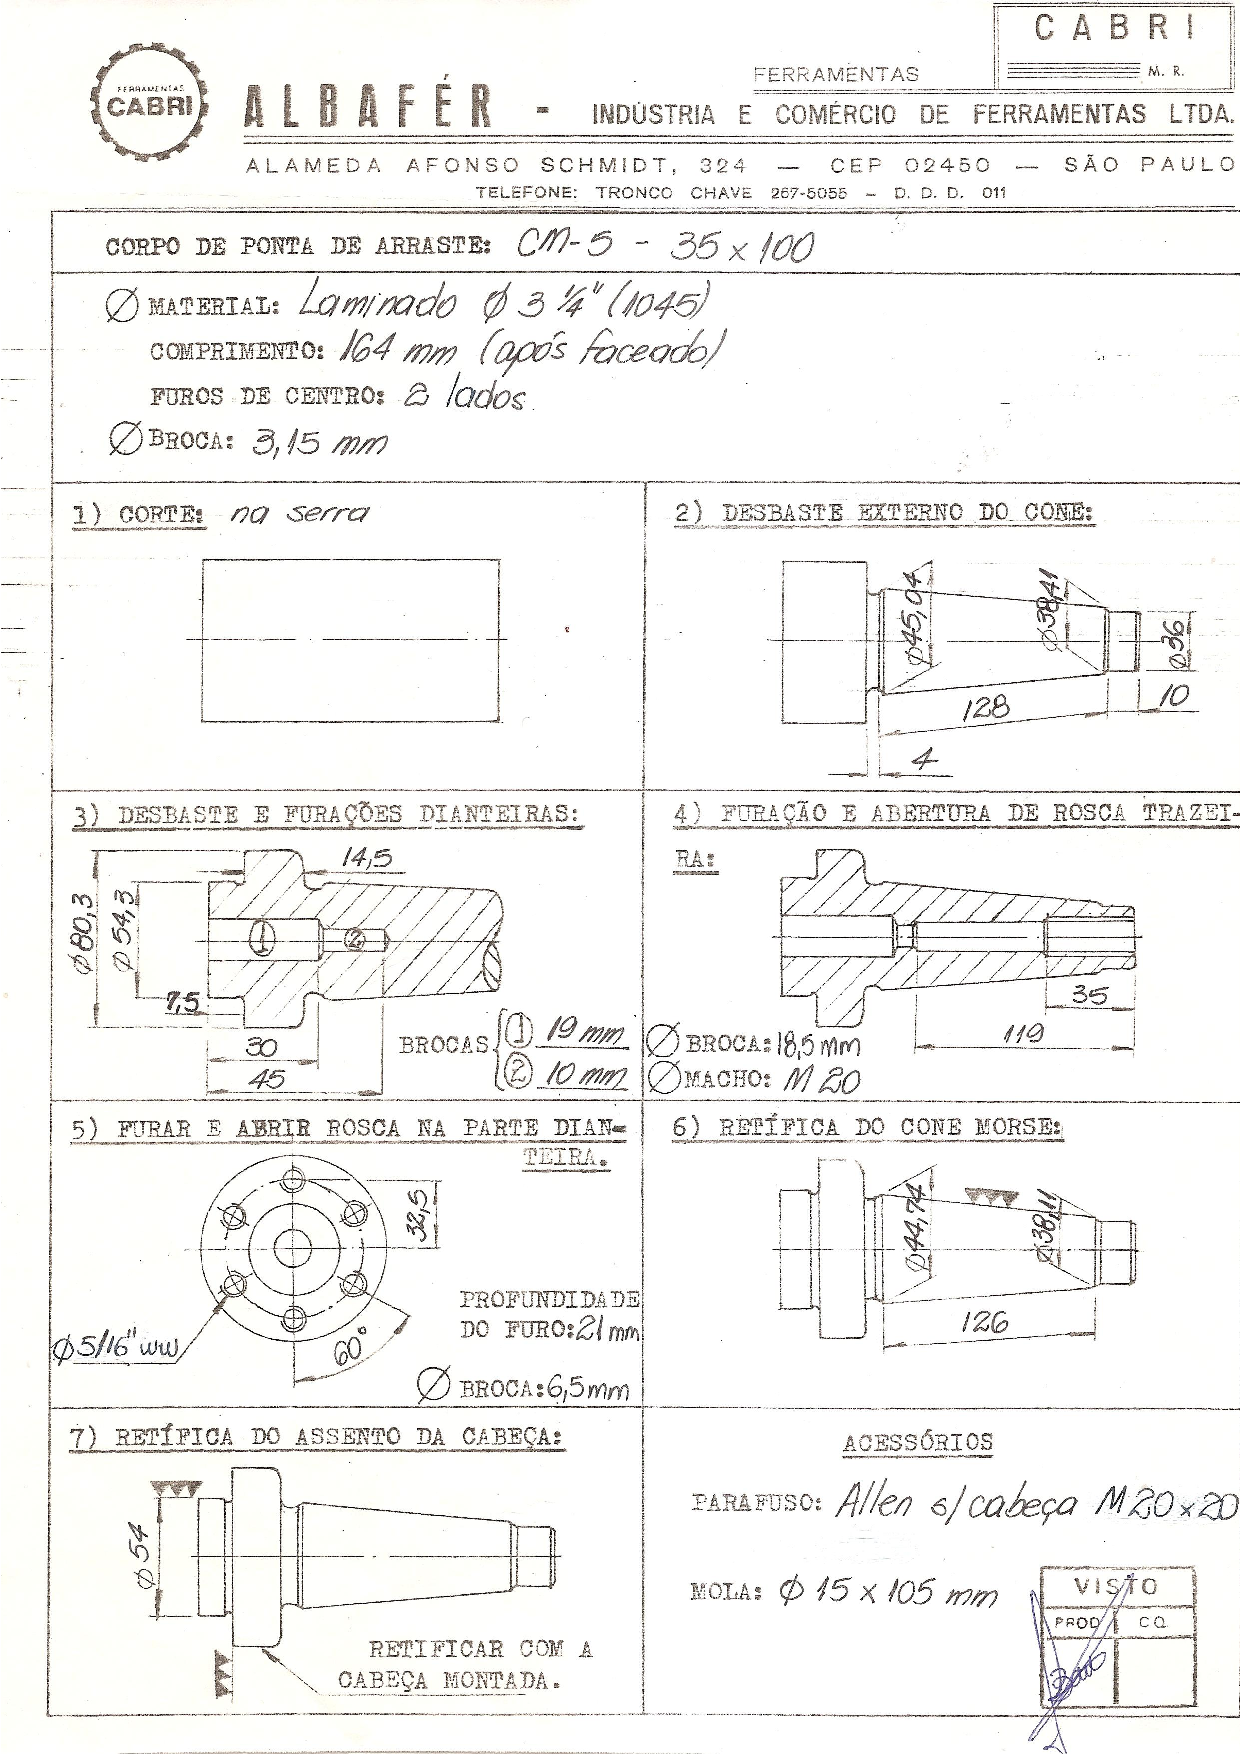 CABRI
M. R.
FERRAMENTAS
FERRAMENTAS
CABRI
ALBAFÉR - INDÚSTRIA E COMÉRCIO DE FERRAMENTAS LTDA.
ALAMEDA AFONSO SCHMIDT, 324 — CEP 02450 — SÃO PAULO
TELEFONE: TRONCO CHAVE 267-5055 - D. D. D. 011
CORPO DE PONTA DE ARRASTE: CM-5 - 35 x 100
Ø MATERIAL: Laminado Ø 3 1/4" (1045)
COMPRIMENTO: 164 mm (após faceado)
FUROS DE CENTRO: 2 lados
Ø BROCA: 3,15 mm
1) CORTE: na serra
2) DESBASTE EXTERNO DO CONE:
Ø45,04
Ø38,41
Ø36
128
10
4
3) DESBASTE E FURAÇÕES DIANTEIRAS:
14,5
Ø80,3
Ø54,3
1
2
7,5
30
45
BROCAS
1 19 mm
2 10 mm
4) FURAÇÃO E ABERTURA DE ROSCA TRAZEI-
RA:
35
119
Ø BROCA: 18,5 mm
Ø MACHO: M 20
5) FURAR E ABRIR ROSCA NA PARTE DIAN-
TEIRA.
32,5
Ø5/16" WW
60°
PROFUNDIDADE
DO FURO: 21 mm
Ø BROCA: 6,5 mm
6) RETÍFICA DO CONE MORSE:
Ø44,74
Ø38,11
126
7) RETÍFICA DO ASSENTO DA CABEÇA:
Ø54
RETIFICAR COM A
CABEÇA MONTADA.
ACESSÓRIOS
PARAFUSO: Allen s/ cabeça M 20 x 20
MOLA: Ø 15 x 105 mm
VISTO
PROD CQ